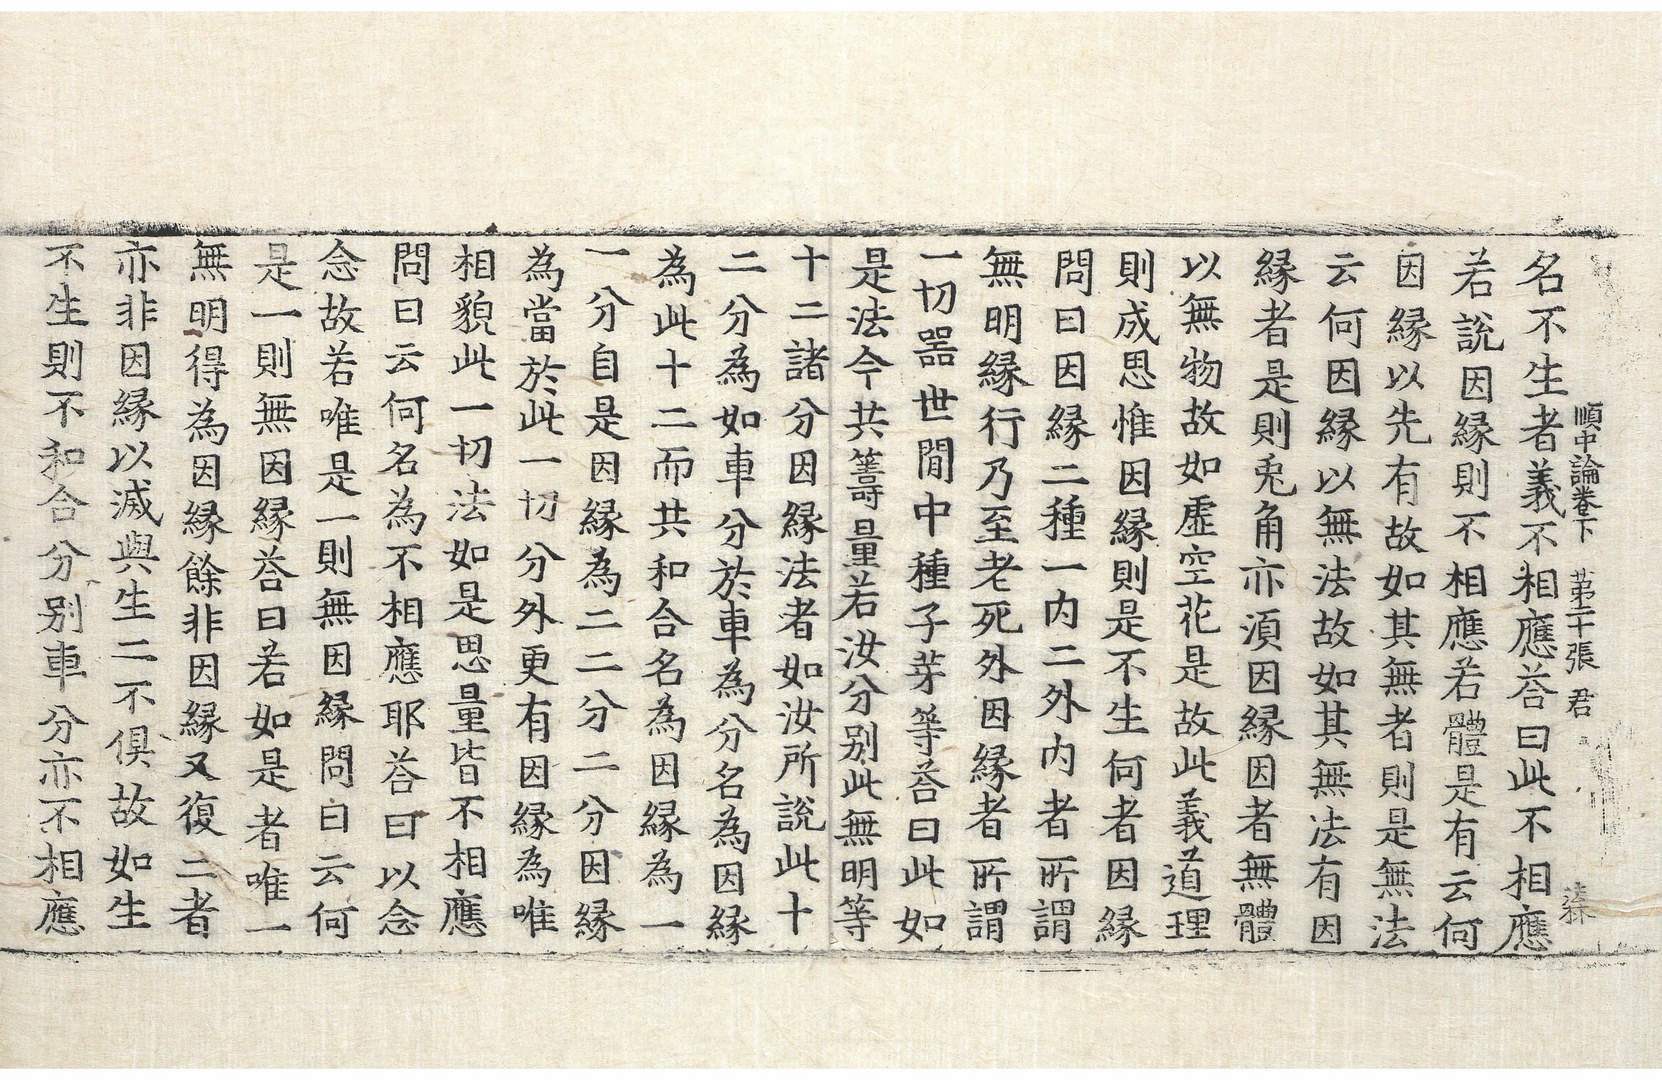 順中論卷下 苐二十張 君
名不生者義不相應荅曰此不相應
若說因縁則不相應若體是有云何
因縁以先有故如其無者則是無法
云何因縁以無法故如其無法有因
縁者是則兎角亦湏因縁因者無體
以無物故如虛空花是故此義道理
則成思惟因縁則是不生何者因縁
問曰因縁二種一内二外内者所謂
無明縁行乃至老死外因縁者所謂
一切噐世閒中種子芽等荅曰此如
是法今共籌量若汝分別此無明等
十二諸分因縁法者如汝所說此十
二分為如車分於車為分名為因縁
為此十二而共和合名為因縁為一
一分自是因縁為二二分二分因縁
為當於此一切分外更有因縁為唯
相貌此一切法如是思量皆不相應
問曰云何名為不相應耶荅曰以念
念故若唯是一則無因縁問曰云何
是一則無因縁荅曰若如是者唯一
無明得為因縁餘非因縁又復二者
亦非因縁以滅與生二不俱故如生
不生則不和合分別車分亦不相應